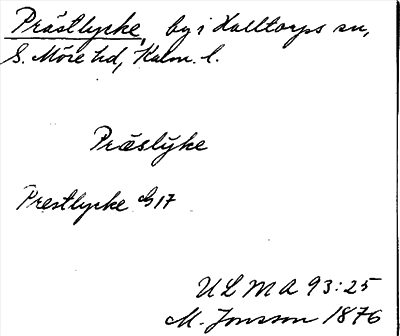 Prästlycke, by i Halltorps sn,
S. Möre hd, Kalm. l.
Präslýke
Prestlycke G17
ULMA 93:25
M. Jonsson 1876